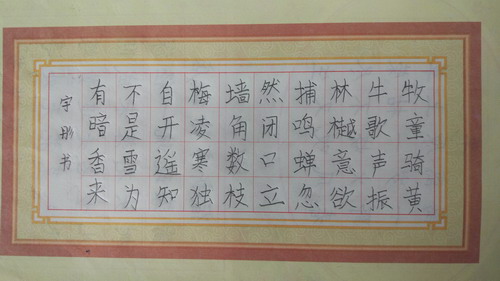 牧童骑黄
牛歌声振
林樾意欲
捕鸣蝉忽
然闭口立
墙角数枝
梅凌寒独
自开遥知
不是雪为
有暗香来
宇彤书